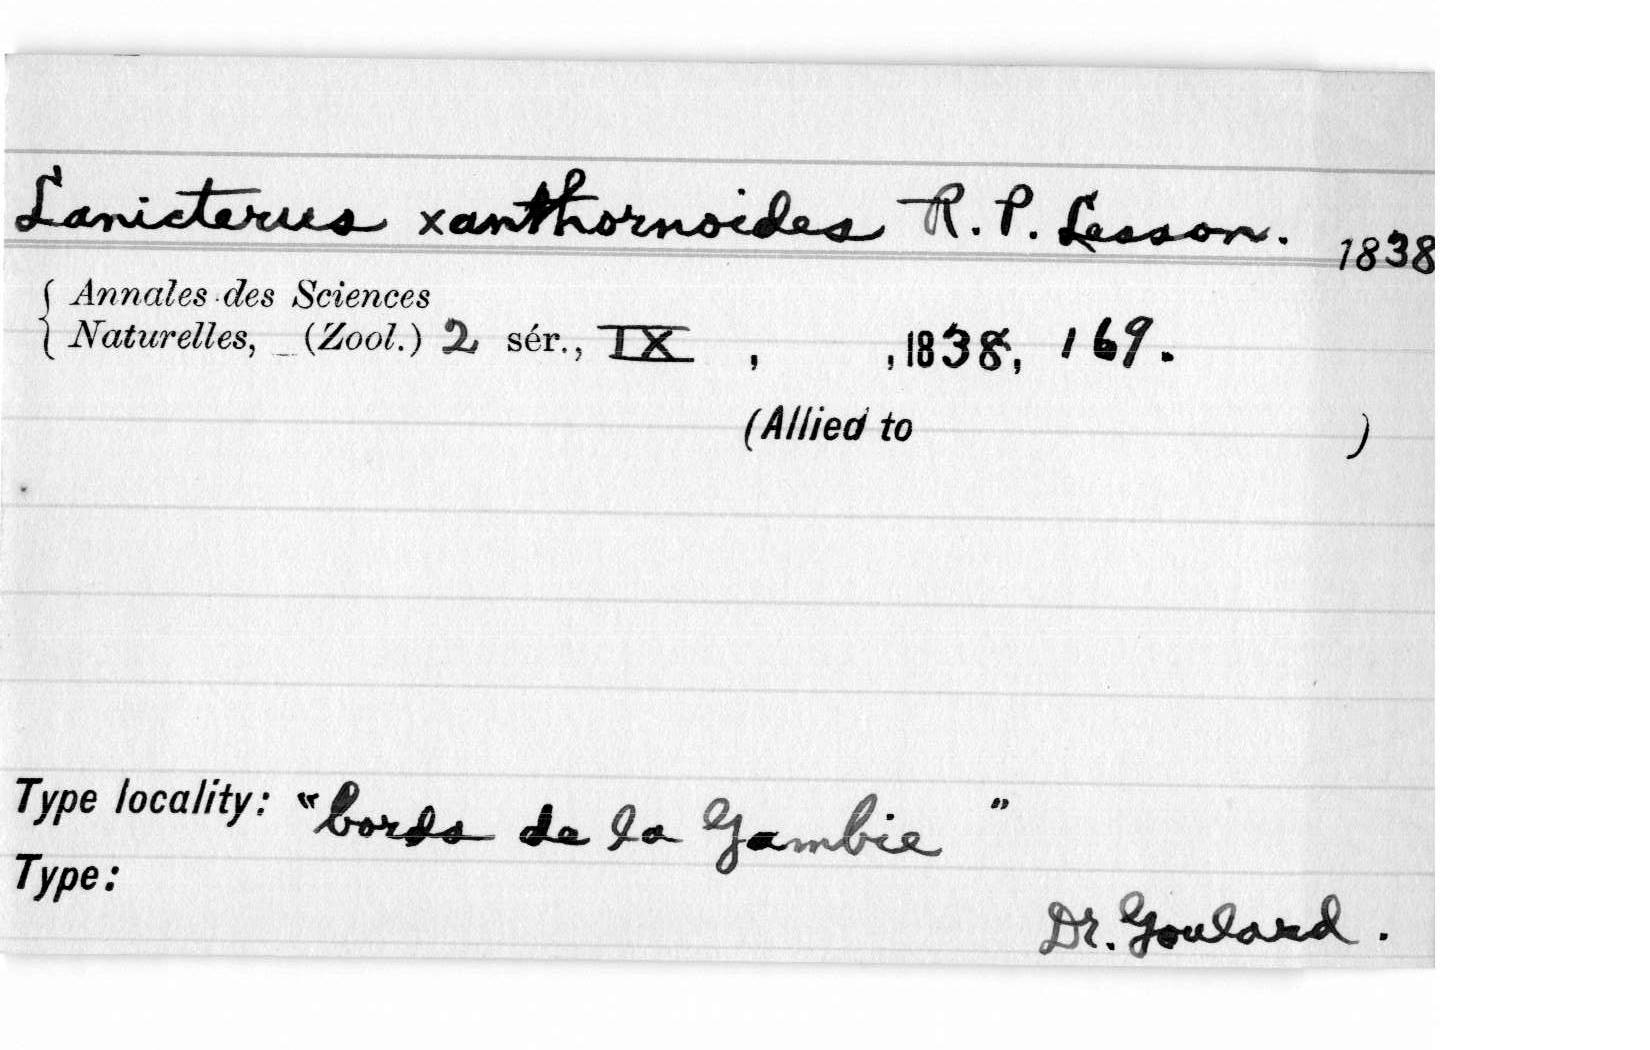 Lanicterus xanthornoides R. P. Lesson. 1838
{ Annales des Sciences
Naturelles, (Zool.) 2 sér., IX , , 1838, 169.
(Allied to )
Type locality: "bords de la Gambie "
Type:
Dr. Goulard.